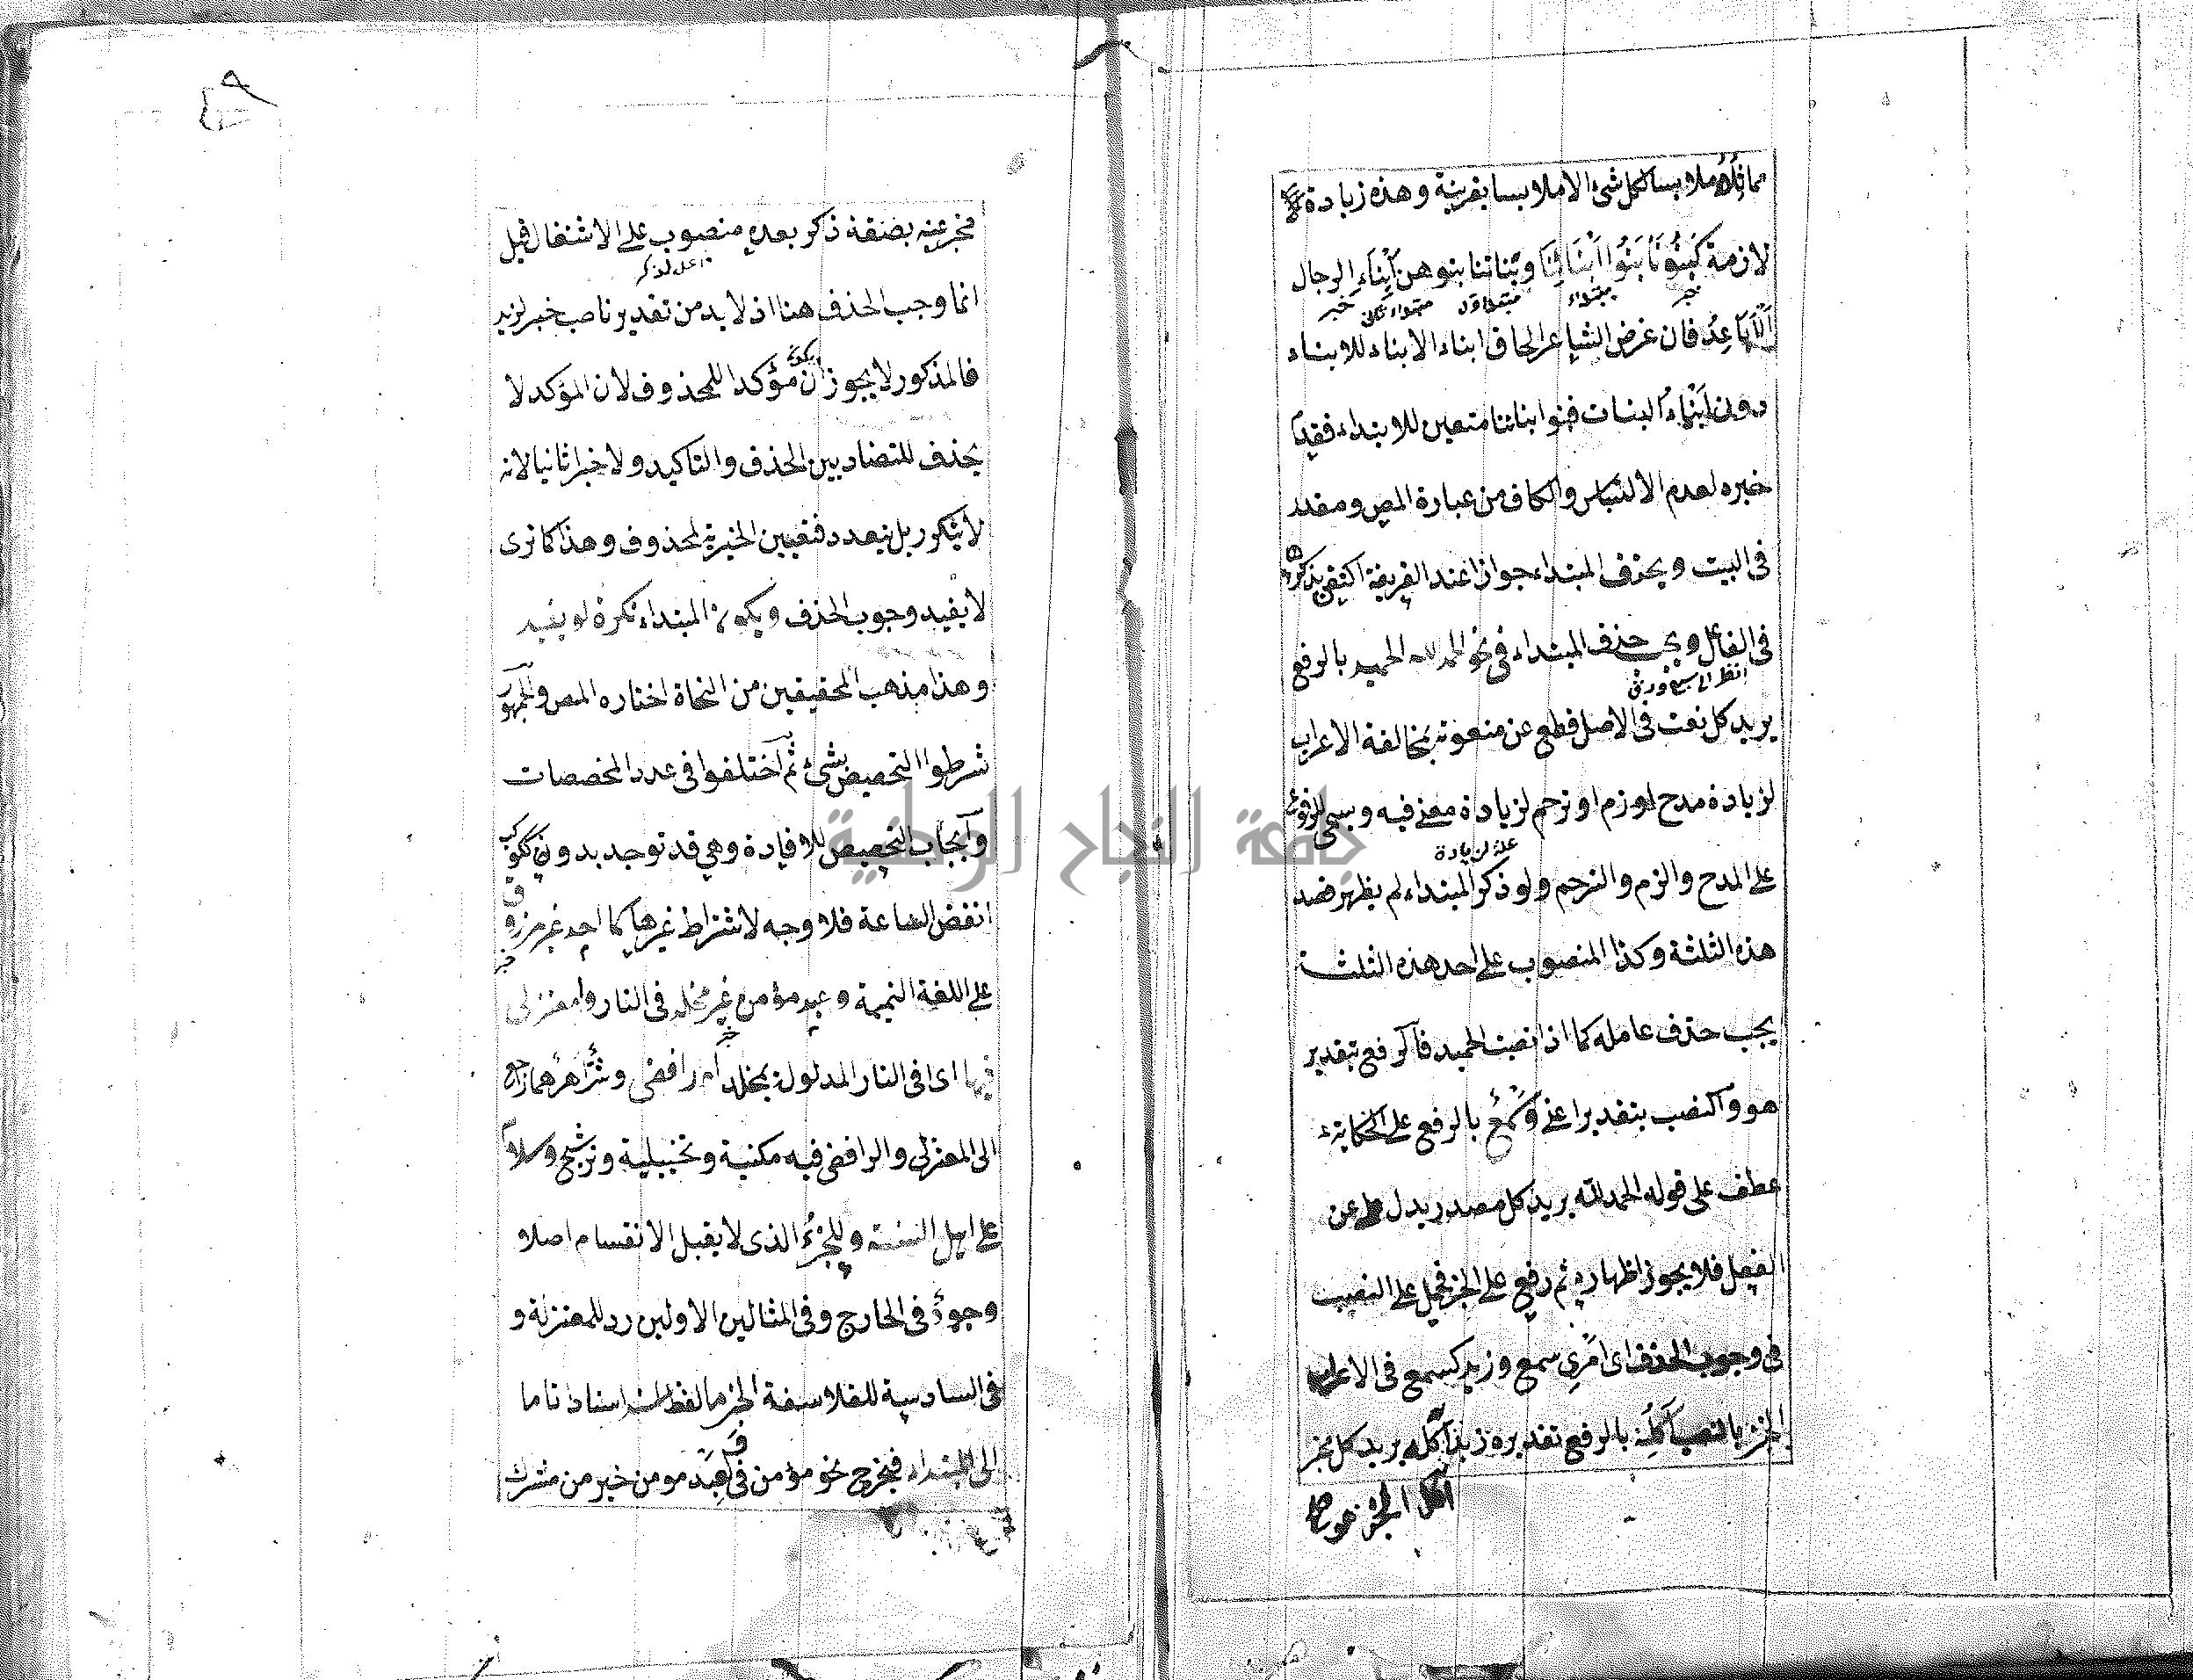 مماثلا ملابسا لكل شئ الا ملابسا بقرينة وهذه زيادة
لازمة كَبَنُونَا بَنُوا اَبْنَائِنَا وبَنَاتنا بنوهن اَبْنَاءِ الرجال
خبر مبتداء مبتداء اول مبتداء ثانى خبر
اَلْاَبَاعِدُ فان غرض الشاعر الحاق ابناء الابناء للابناء
دون اَبْنَاء البنات فبنوا ابنائنا متعين للابتداء فقدم
خبره لعدم الالتباس والكاف من عبارة المص ومقدر
فى البيت ويحذف المبتداء جوازا عند القرينة اكتفى بذكره
فى الفاعل ويجب حذف المبتداء فى نحو الحمد لله الحميد بالرفع
يريد كل نعت فى الاصل قطع عن منعوته بمخالفة الاعراب
لزيادة مدح او زم او ترحم لزيادة معنى فيه ويسمى
علة لزيادة
على المدح والزم والترحم ولو ذكر المبتداء لم يظهر قصد
هذه الثلثة وكذا المنصوب على احد هذه الثلثة
يجب حذف عامله كما اذا نصبت الحميد فالرفع بتقدير
هو والنصب بتقدير اعنى وسَمْعٌ بالرفع على الحكاية
عطف على قوله الحمد لله يريد كل مصدر بدل عن
الفعل فلا يجوز اظهاره ثم رفع على الخبر فحمل على النصب
فى وجوب الحذف اى امرى سمع وزيد كسمع فى الاعراب
الخبز بالنصب اَكَلَه بالرفع تقديره زيد اكله يريد كل مخبر
اكل الخبز
مخبر عنه بصفة ذكر بعده منصوب على الاشتغال قيل
فاعل لذكر
انما وجب الحذف هنا اذ لا بد من تقدير ناصب خبر لزيد
فالمذكور لا يجوز ان يكون مؤكدا للمحذوف لان المؤكد لا
يحذف للتضاد بين الحذف والتاكيد ولا خبرا ثانيا لانه
لا يتكرر بل يتعدد فتعين الخبرية لمحذوف وهذا كما ترى
لا يفيد وجوب الحذف ويكون المبتداء نكرة لو يفيد
وهذا مذهب المحققين من النحاة اختاره المص والجمهور
شرطوا التخصيص بشئ ثم اختلفوا فى عدد المخصصات
وايجاب التخصيص للافادة وهى قد توجد بدونه ككوكب
انقض الساعة فلا وجه لاشتراط غيرها كما احد غير مرزوق
على اللغة التميمة وعبد مؤمن غير مخلد فى النار وامعتزلى
خبر
فيها اى فى النار المدلولة بمخلد ام رافضى وشَرٌّ اَهَرَّهُمَا راجع
الى المعتزلى والرافضى فيه مكنية وتخييلية وترشيح وسلام
على اهل السنة وللجُزْءُ الذى لا يقبل الانقسام اصلا
وجودٌ فى الخارج وفى المثالين الاولين رد للمعتزلة و
فى السادسة للفلاسفة الخبر ما لفظ اسند اسنادا تاما
الى المبتداء فيخرج نحو مؤمن فى قوله لعبد مومن خير من مشرك
جامعة النجاح الوطنية